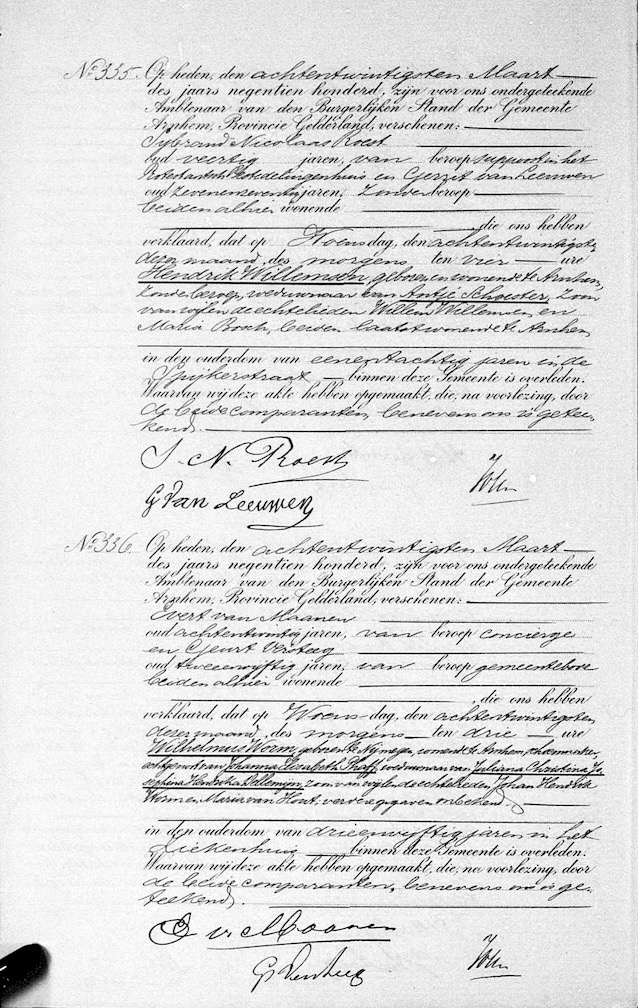 No 335. Op heden, den achtentwintigsten Maart
des jaars negentien honderd, zijn voor ons ondergeteekende
Ambtenaar van den Burgerlijken Stand der Gemeente
Arnhem, Provincie Gelderland, verschenen:
Sybrand Nicolaas Roest
oud veertig jaren, van beroep suppoost in het
Protestantsch Bestedelingenhuis en Gerrit van Leeuwen
oud zevenenzeventig jaren, zonder beroep
beiden alhier wonende
, die ons hebben
verklaard, dat op Woensdag, den achtentwintigsten
dezer maand, des morgens ten vier ure
Hendrik Willemsen, geboren en wonende te Arnhem,
zonder beroep, weduwnaar van Antje Schoester, zoon
van wijlen de echtelieden Willem Willemsen, en
Maria Bosch, beiden laatst wonende te Arnhem
in den ouderdom van eenentachtig jaren in de
Spijkerstraat binnen deze Gemeente is overleden.
Waarvan wij deze akte hebben opgemaakt, die, na voorlezing, door
de beide comparanten, benevens ons is getee-
kend.
S. N. Roest
G van Leeuwen
No 336. Op heden, den achtentwintigsten Maart
des jaars negentien honderd, zijn voor ons ondergeteekende
Ambtenaar van den Burgerlijken Stand der Gemeente
Arnhem, Provincie Gelderland, verschenen:
Evert van Maanen
oud achtentwintig jaren, van beroep concierge
en Geurt Versteeg
oud tweeenvijftig jaren, van beroep gemeentebode
beiden alhier wonende
, die ons hebben
verklaard, dat op Woensdag, den achtentwintigsten
dezer maand, des morgens ten drie ure
Wilhelmus Worm, geboren te Nijmegen, wonende te Arnhem,
echtgenoot van Johanna Elizabeth Phaff, weduwnaar van Juliana Christina Jo-
sephina Hendrika Willemijn, zoon van wijlen de echtelieden Johan Hendrik
Worm en Maria van Hout, verdere gegevens onbekend.
in den ouderdom van drieenvijftig jaren in het
Ziekenhuis binnen deze Gemeente is overleden.
Waarvan wij deze akte hebben opgemaakt, die, na voorlezing, door
de beide comparanten, benevens ons is ge-
teekend.
E v. Maanen
G Versteeg